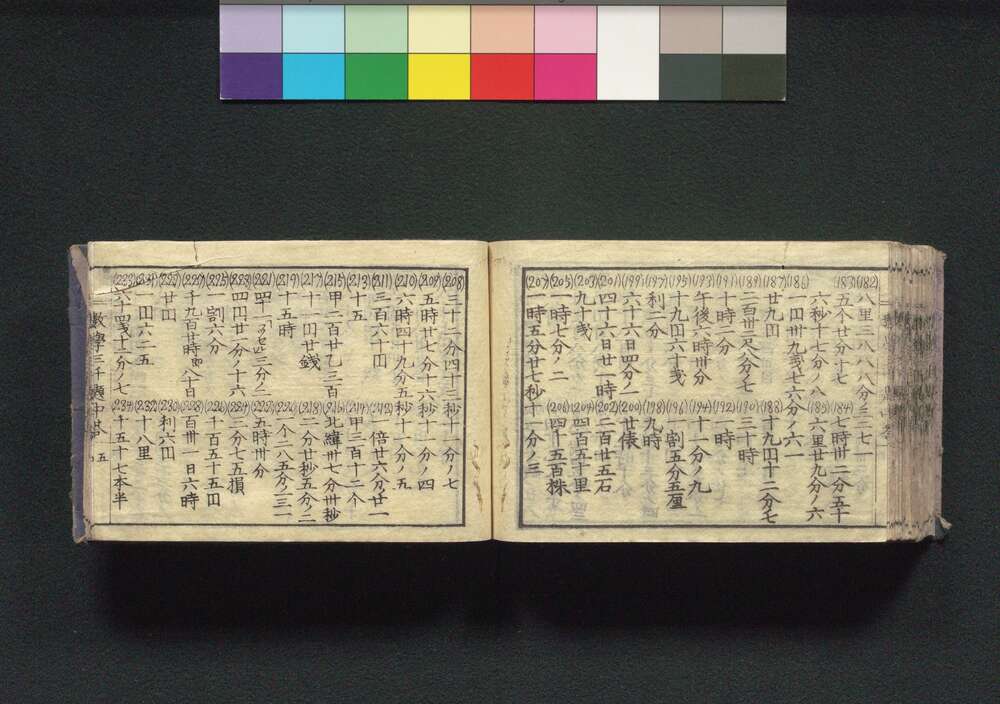 (182) 八里三八八八分ノ三七一
(183) 五个廿分ノ十七 (184) 七時卅二分五十
六秒十七分ノ八 (185) 六里廿九分ノ六
(186) 一円卅九戔七六分ノ六一
(187) 廿九円 (188) 十九円十二分七
(189) 二百卅三疋八分ノ七 (190) 三十時
(191) 十時二分 (192) 一時
(193) 午後六時卅分 (194) 十一分ノ九
(195) 十九円六十戔 (196) 割五分五厘
(197) 利二分 (198) 九時
(199) 六十六日四分ノ一 (200) 廿俵
(201) 四十六日廿一時 (202) 二百廿五石
(203) 九十戔 (204) 四百五十里
(205) 一時七分ノ二 (206) 四十五百株
(207) 一時五分廿七秒十一分ノ三
(208) 三十二分四十三秒十一分ノ七
(209) 五時廿七分十六秒十一分ノ四
(210) 六時四十九分五秒十一分ノ九
(211) 三百六十円 (212) 一倍廿六分ノ廿一
(213) 十五 (214) 甲三百十二个
(215) 甲二百廿乙三百 (216) 北緯卅七分卅秒
(217) 十一円廿銭 (218) 二分廿秒五分ノ二
(219) 十五時 (220) 一个二八五分ノ三一
(221) 三分ノ二 (222) 五時卅分
(223) 四円廿一分ノ十六 (224) 三分七五損
(225) 一割六分 (226) 千百五十五円
(227) 千九百廿時即八十日 (228) 百卅一日六時
(229) 廿円 (230) 利六円
(231) 一円六二五 (232) 十八里
(233) 六十四戔十二分ノ七 (234) 十五十七本半
数學三千題中答 五